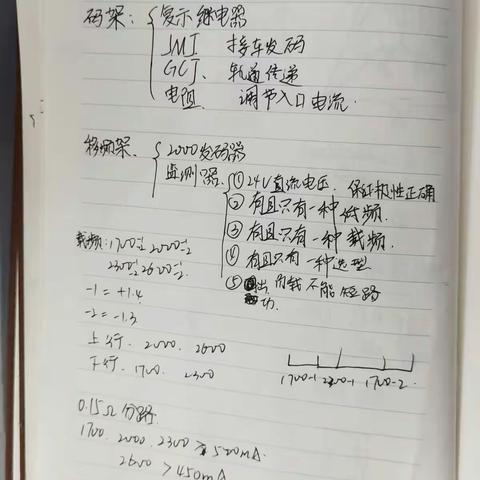 码架：{复示继电器
JMJ 接车发码
GCJ、轨道传递
电阻 调节入口电流.
移频架. {2000发码器
监测器. {①24V直流电压. 保证极性正确
②有且只有一种低频.
③有且只有一种载频.
④有且只有一种选型
⑤功出负载不能短路
载频：1700-1-2 2000-1-2
2300-1-2 2600-1-2
-1 = +1.4
-2 = -1.3
上行. 2000. 2600
下行. 1700. 2300
1700-1 2300-1 1700-2
0.15Ω 分路.
1700. 2000. 2300 ≥ 500mA.
2600 > 450mA